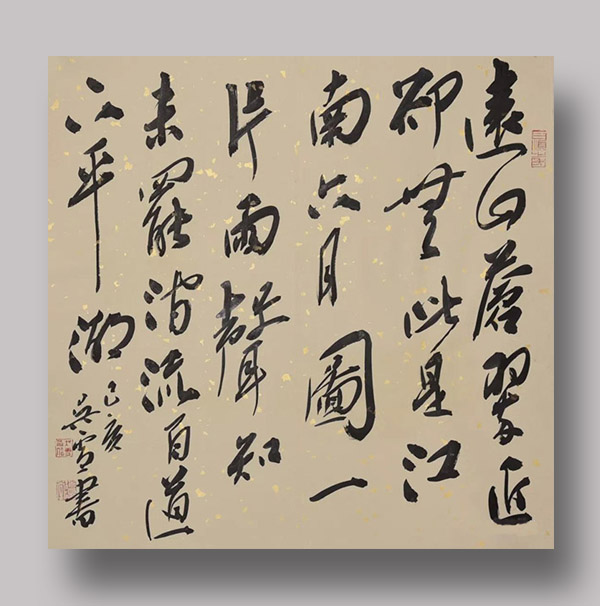 遠山蒼翠近
卻無此是江
南六月圖一
片雨聲知
未罷澗流百道
下平湖
己亥
吳雪書